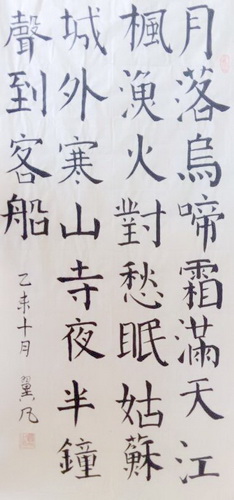 月落烏啼霜滿天江
楓漁火對愁眠姑蘇
城外寒山寺夜半鐘
聲到客船
乙未十月 翼凡